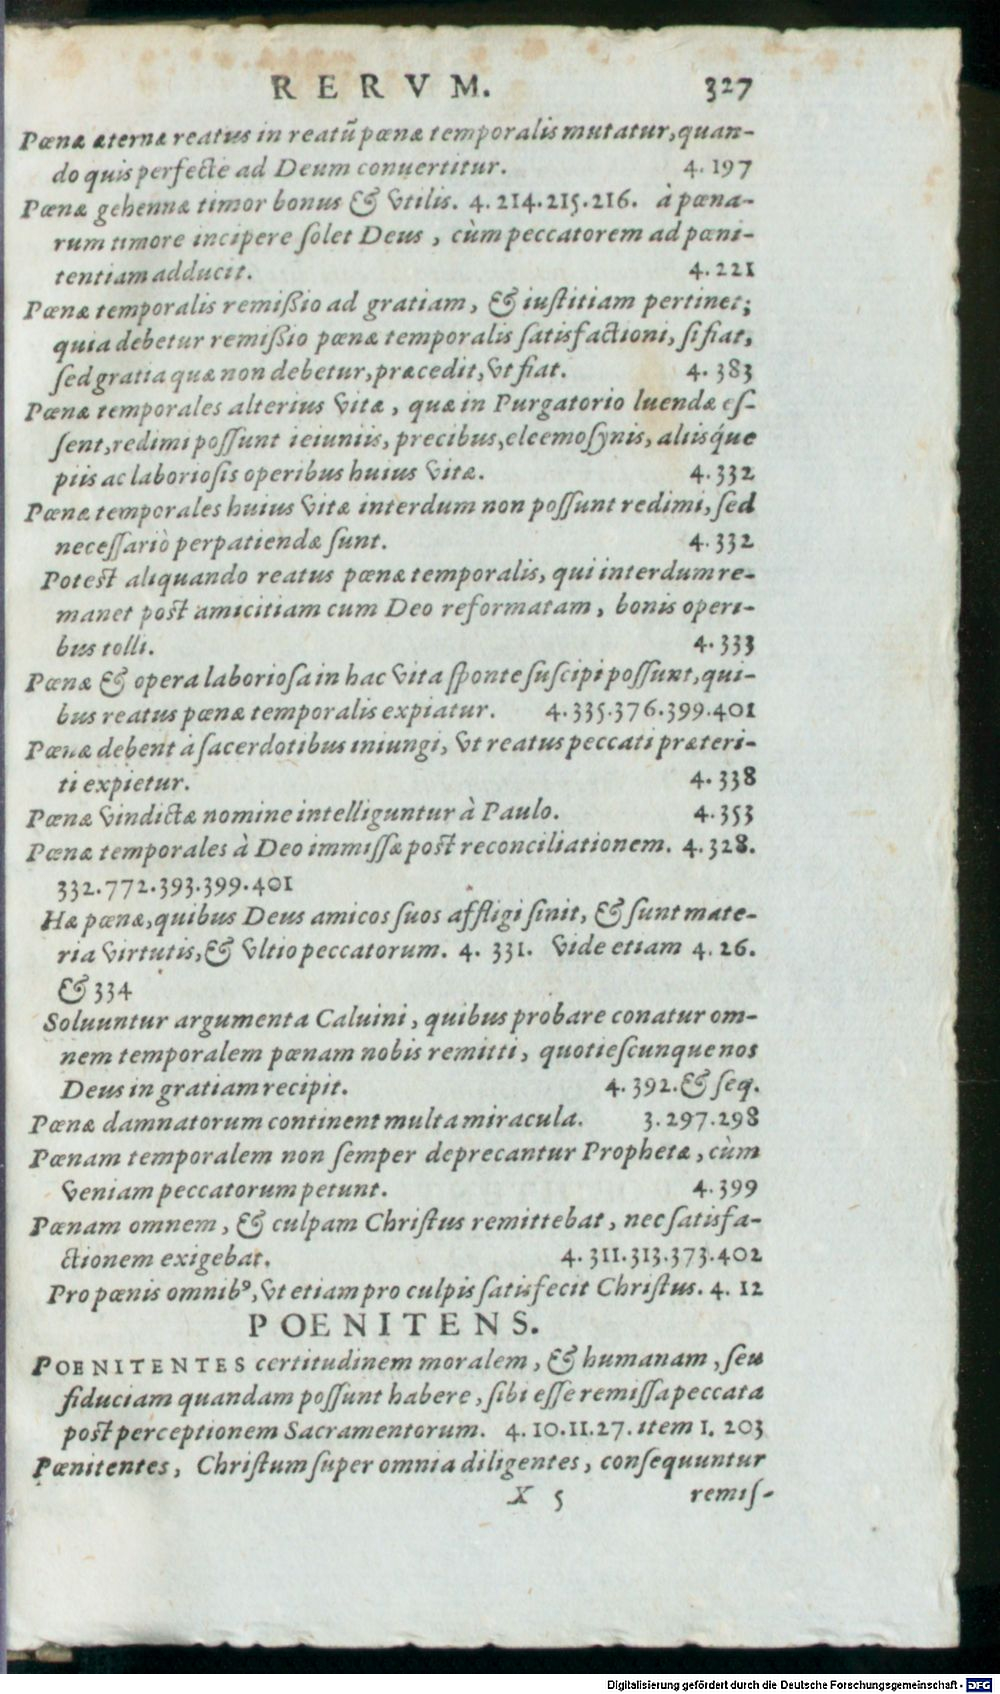 RERVM. 327
Pœnæ æternæ reatus in reatũ pœnæ temporalis mutatur, quan-
do quis perfecte ad Deum conuertitur. 4. 197
Pœnæ gehennæ timor bonus & vtilis. 4. 214. 215. 216. à pœna-
rum timore incipere ſolet Deus, cùm peccatorem ad pœni-
tentiam adducit. 4. 221
Pœnæ temporalis remiſsio ad gratiam, & iuſtitiam pertinet;
quia debetur remiſsio pœnæ temporalis ſatisfactioni, ſi fiat,
ſed gratia quæ non debetur, præcedit, vt fiat. 4. 383
Pœnæ temporales alterius vitæ, quæ in Purgatorio luendæ eſ-
ſent, redimi poſſunt ieiuniis, precibus, eleemoſynis, aliisq́ue
piis ac laborioſis operibus huius vitæ. 4. 332
Pœnæ temporales huius vitæ interdum non poſſunt redimi, ſed
neceſſariò perpatiendæ ſunt. 4. 332
Poteſt aliquando reatus pœnæ temporalis, qui interdum re-
manet poſt amicitiam cum Deo reformatam, bonis operi-
bus tolli. 4. 333
Pœnæ & opera laborioſa in hac vita ſponte ſuſcipi poſſunt, qui-
bus reatus pœnæ temporalis expiatur. 4. 335. 376. 399. 401
Pœnæ debent à ſacerdotibus iniungi, vt reatus peccati præteri-
ti expietur. 4. 338
Pœnæ vindictæ nomine intelliguntur à Paulo. 4. 353
Pœnæ temporales à Deo immiſſæ poſt reconciliationem. 4. 328.
332. 772. 393. 399. 401
Hæ pœnæ, quibus Deus amicos ſuos affligi ſinit, & ſunt mate-
ria virtutis, & vltio peccatorum. 4. 331. vide etiam 4. 26.
& 334
Soluuntur argumenta Caluini, quibus probare conatur om-
nem temporalem pœnam nobis remitti, quotieſcunque nos
Deus in gratiam recipit. 4. 392. & ſeq.
Pœnæ damnatorum continent multa miracula. 3. 297. 298
Pœnam temporalem non ſemper deprecantur Prophetæ, cùm
veniam peccatorum petunt. 4. 399
Pœnam omnem, & culpam Chriſtus remittebat, nec ſatisfa-
ctionem exigebat. 4. 311. 313. 373. 402
Pro pœnis omnibꝰ, vt etiam pro culpis ſatisfecit Chriſtus. 4. 12
POENITENS.
POENITENTES certitudinem moralem, & humanam, ſeu
fiduciam quandam poſſunt habere, ſibi eſſe remiſſa peccata
poſt perceptionem Sacramentorum. 4. 10. 11. 27. item 1. 203
Pœnitentes, Chriſtum ſuper omnia diligentes, conſequuntur
X 5 remiſ-
Digitalisierung gefördert durch die Deutsche Forschungsgemeinschaft - DFG